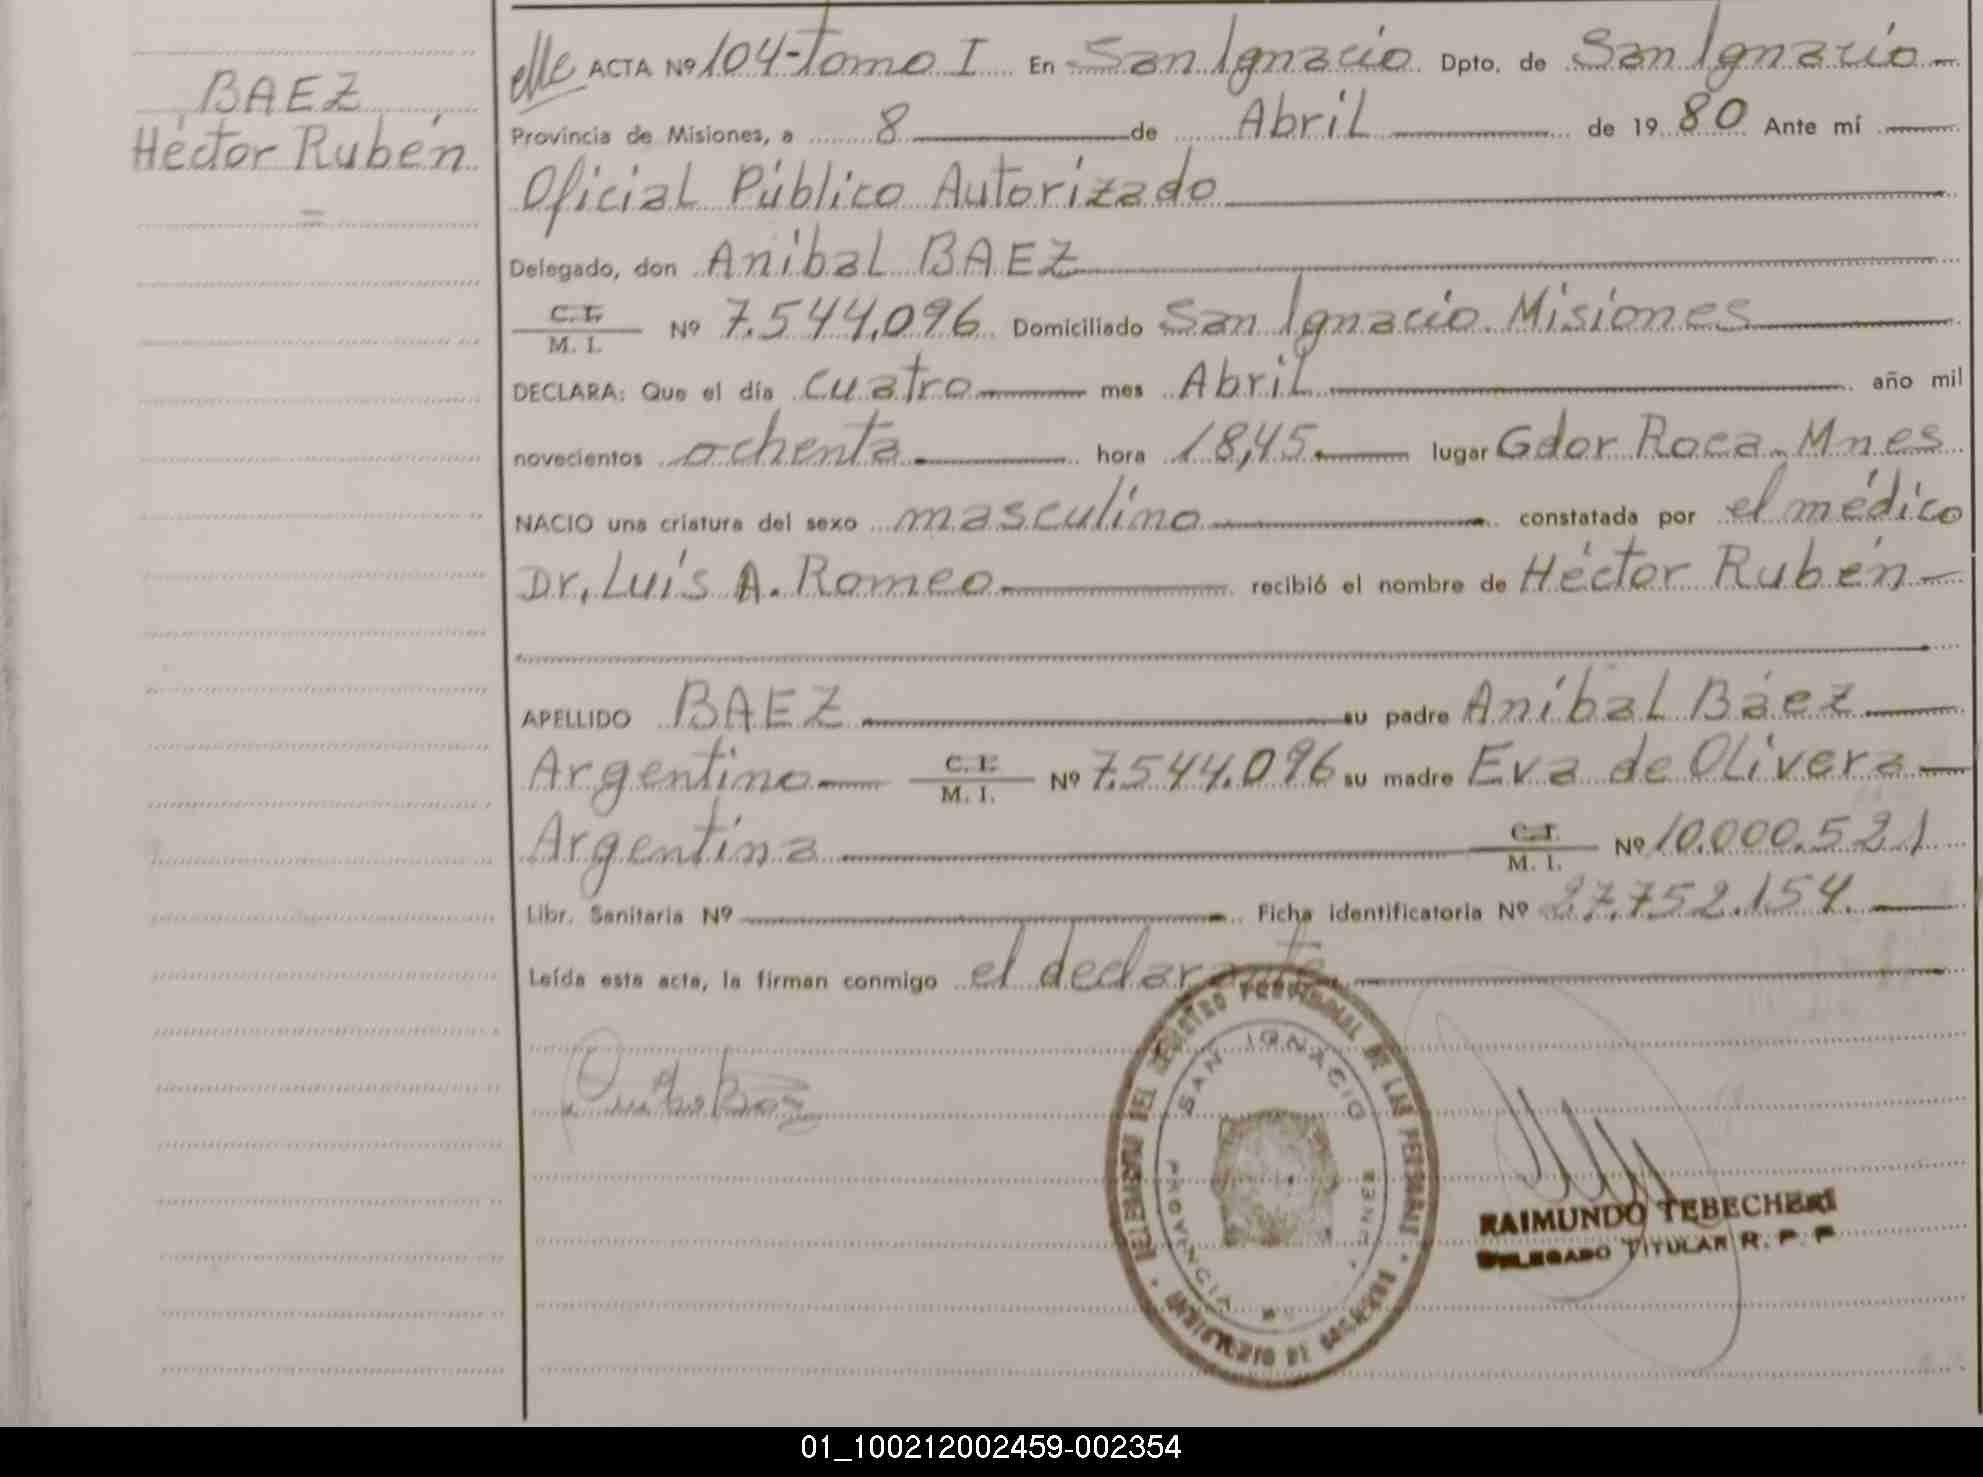 BAEZ
Héctor Rubén
=
ACTA Nº 104-Tomo I En San Ignacio Dpto. de San Ignacio
Provincia de Misiones, a 8 de Abril de 1980 Ante mí
Oficial Público Autorizado
Delegado, don Anibal BAEZ
C.I. / M. I. Nº 7.544,096 Domiciliado San Ignacio Misiones
DECLARA: Que el día cuatro mes Abril año mil
novecientos ochenta hora 18,45 lugar Gdor Roca. Mnes
NACIO una criatura del sexo masculino constatada por el médico
Dr. Luis A. Romeo recibió el nombre de Héctor Rubén
APELLIDO BAEZ su padre Aníbal Báez
Argentino C.I. / M. I. Nº 7.544.096 su madre Eva de Olivera
Argentina C.I. / M. I. Nº 10.000.521
Libr. Sanitaria Nº Ficha identificatoria Nº 27.752.154.
Leída esta acta, la firman conmigo el declarante
REGISTRO PROVINCIAL DE LAS PERSONAS
SAN IGNACIO
PROVINCIA
RAIMUNDO TEBECHERI
DELEGADO TITULAR R. P. P
01_100212002459-002354